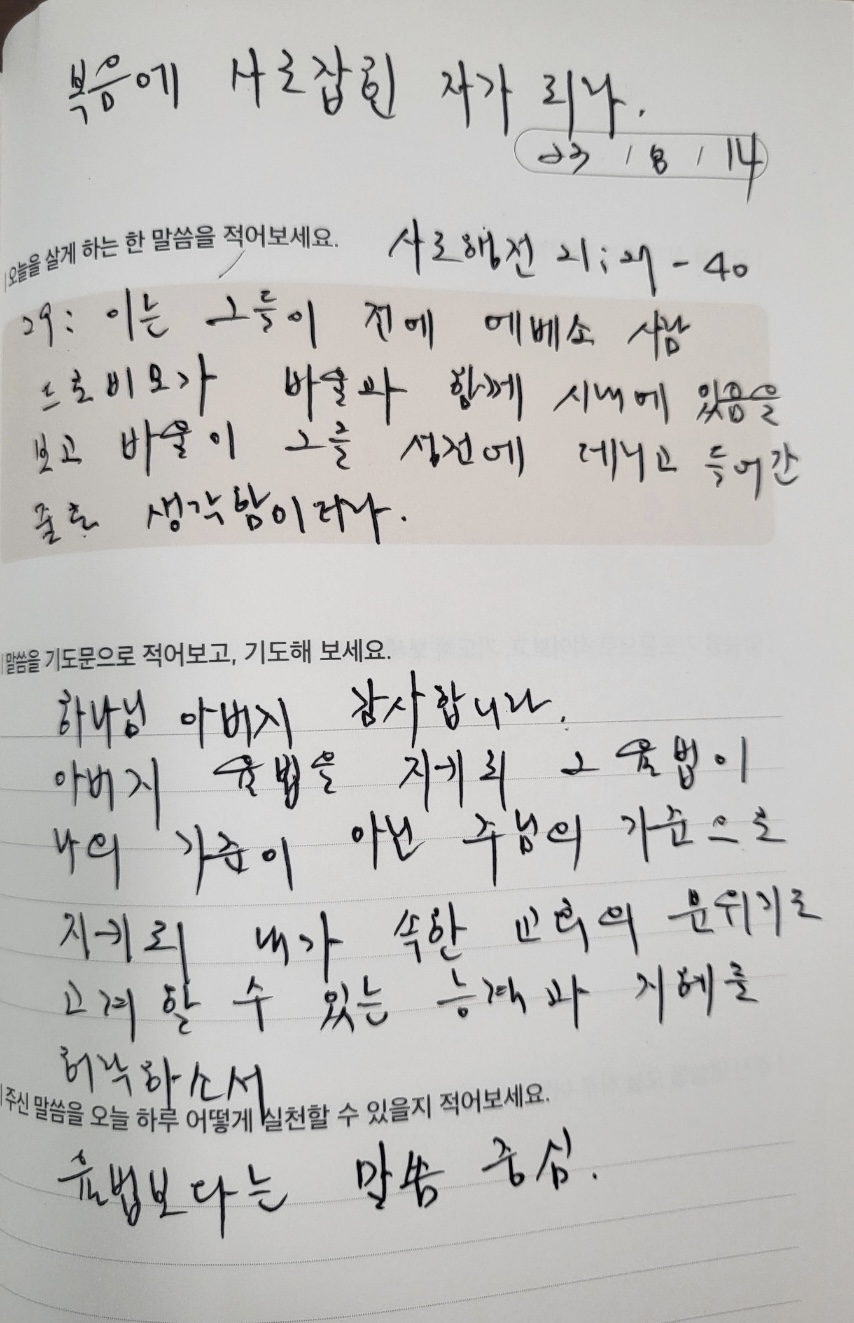 복음에 사로잡힌 자가 되라.
23 / 8 / 14
오늘을 살게 하는 한 말씀을 적어보세요.
사도행전 21:27-40
29: 이는 그들이 전에 에베소 사람
드로비모가 바울과 함께 시내에 있음을
보고 바울이 그를 성전에 데리고 들어간
줄로 생각함이러라.
말씀을 기도문으로 적어보고, 기도해 보세요.
하나님 아버지 감사합니다.
아버지 율법을 지키되 그 율법이
나의 기준이 아닌 주님의 기준으로
지키되 내가 속한 교회의 분위기도
고려할 수 있는 능력과 지혜를
허락하소서
주신 말씀을 오늘 하루 어떻게 실천할 수 있을지 적어보세요.
율법보다는 말씀 중심.